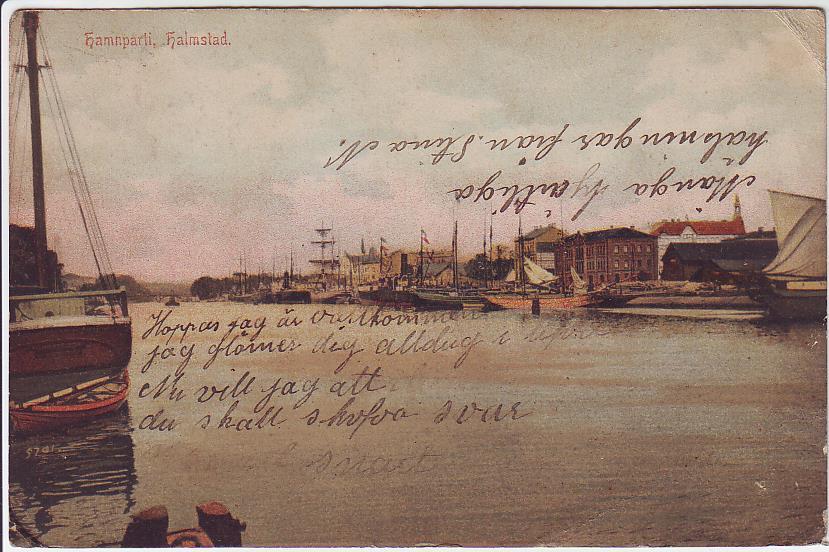 Hamnparti, Halmstad.
Många hjärtliga
hälsningar från Stina N.
Hoppas jag är välkommen
jag glömer dig alldrig i
Nu vill jag att
du skall skrfva svar
snart
5791